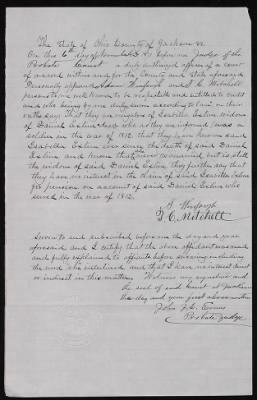 The State of Ohio County of Jackson SS.
On this 6th day of November 1878 before me Judge of the
Probate Court a duly authorized officer of a court
of record within and for the County and State aforesaid
Personally appeared Adam Winfough and D. C. Mitchell
persons to me well known to be respectable and entitled to credit
and who being by me duly sworn according to law on their
oaths say that they are neighbors of Isabella Eslin widow
of Daniel Eslin dec'd who as they are informed was a
soldier in the war of 1812, that they have known said
Isabella Eslin ever since the death of said Daniel
Eslin and know that never remarried but is still
the widow of said Daniel Eslin. They further say that
they have no interest in the claim of said Isabella Eslin
for pension on account of said Daniel Eslin who
served in the war of 1812.
A Winfough
D. C. Mitchell
Sworn to and subscribed before me the day and year
aforesaid and I certify that the above affidavit was read
and fully explained to affiants before swearing including
the words interlined and that I have no interest direct
or indirect in this matter. Witness my signature and
the seal of said Court at Jackson
the day and year first above written
John J. C. Evans
Probate Judge